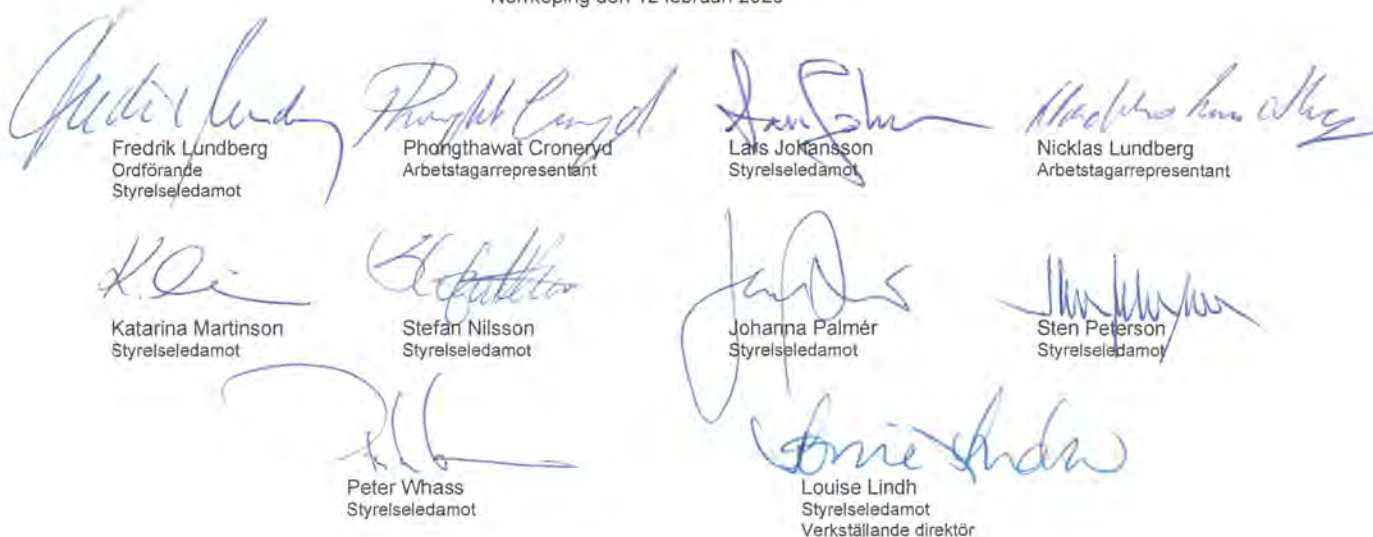 Norrköping den 12 februari
Fredrik Lundberg
Ordförande
Styrelseledamot
Phongthawat Croneryd
Arbetstagarrepresentant
Lars Johansson
Styrelseledamot
Nicklas Lundberg
Arbetstagarrepresentant
Katarina Martinson
Styrelseledamot
Stefan Nilsson
Styrelseledamot
Johanna Palmér
Styrelseledamot
Sten Peterson
Styrelseledamot
Peter Whass
Styrelseledamot
Louise Lindh
Styrelseledamot
Verkställande direktör